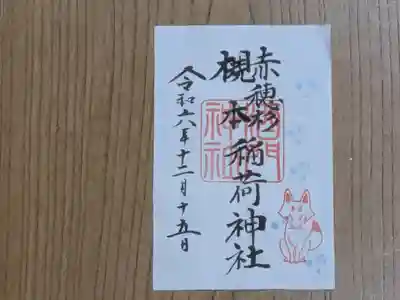 赤穂杉
槻本稲荷神社
令和六年十二月十五日
神社